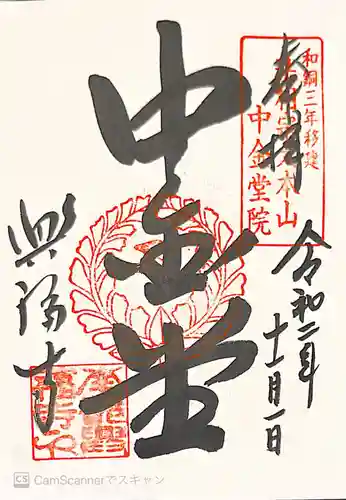 奉拝
和銅三年移建
本山
中金堂院
令和二年
十一月一日
中金堂
興福寺
CS CamScannerでスキャン